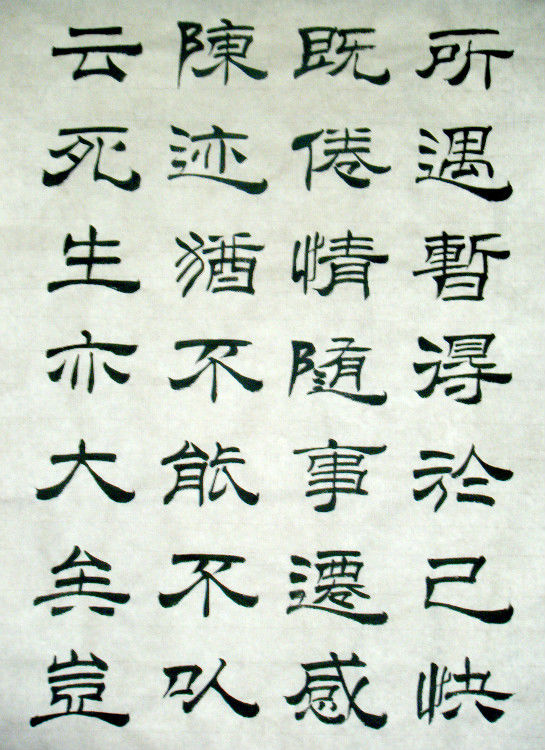 所遇暫得於己快
既倦情隨事遷感
陳迹猶不能不以
云死生亦大矣豈